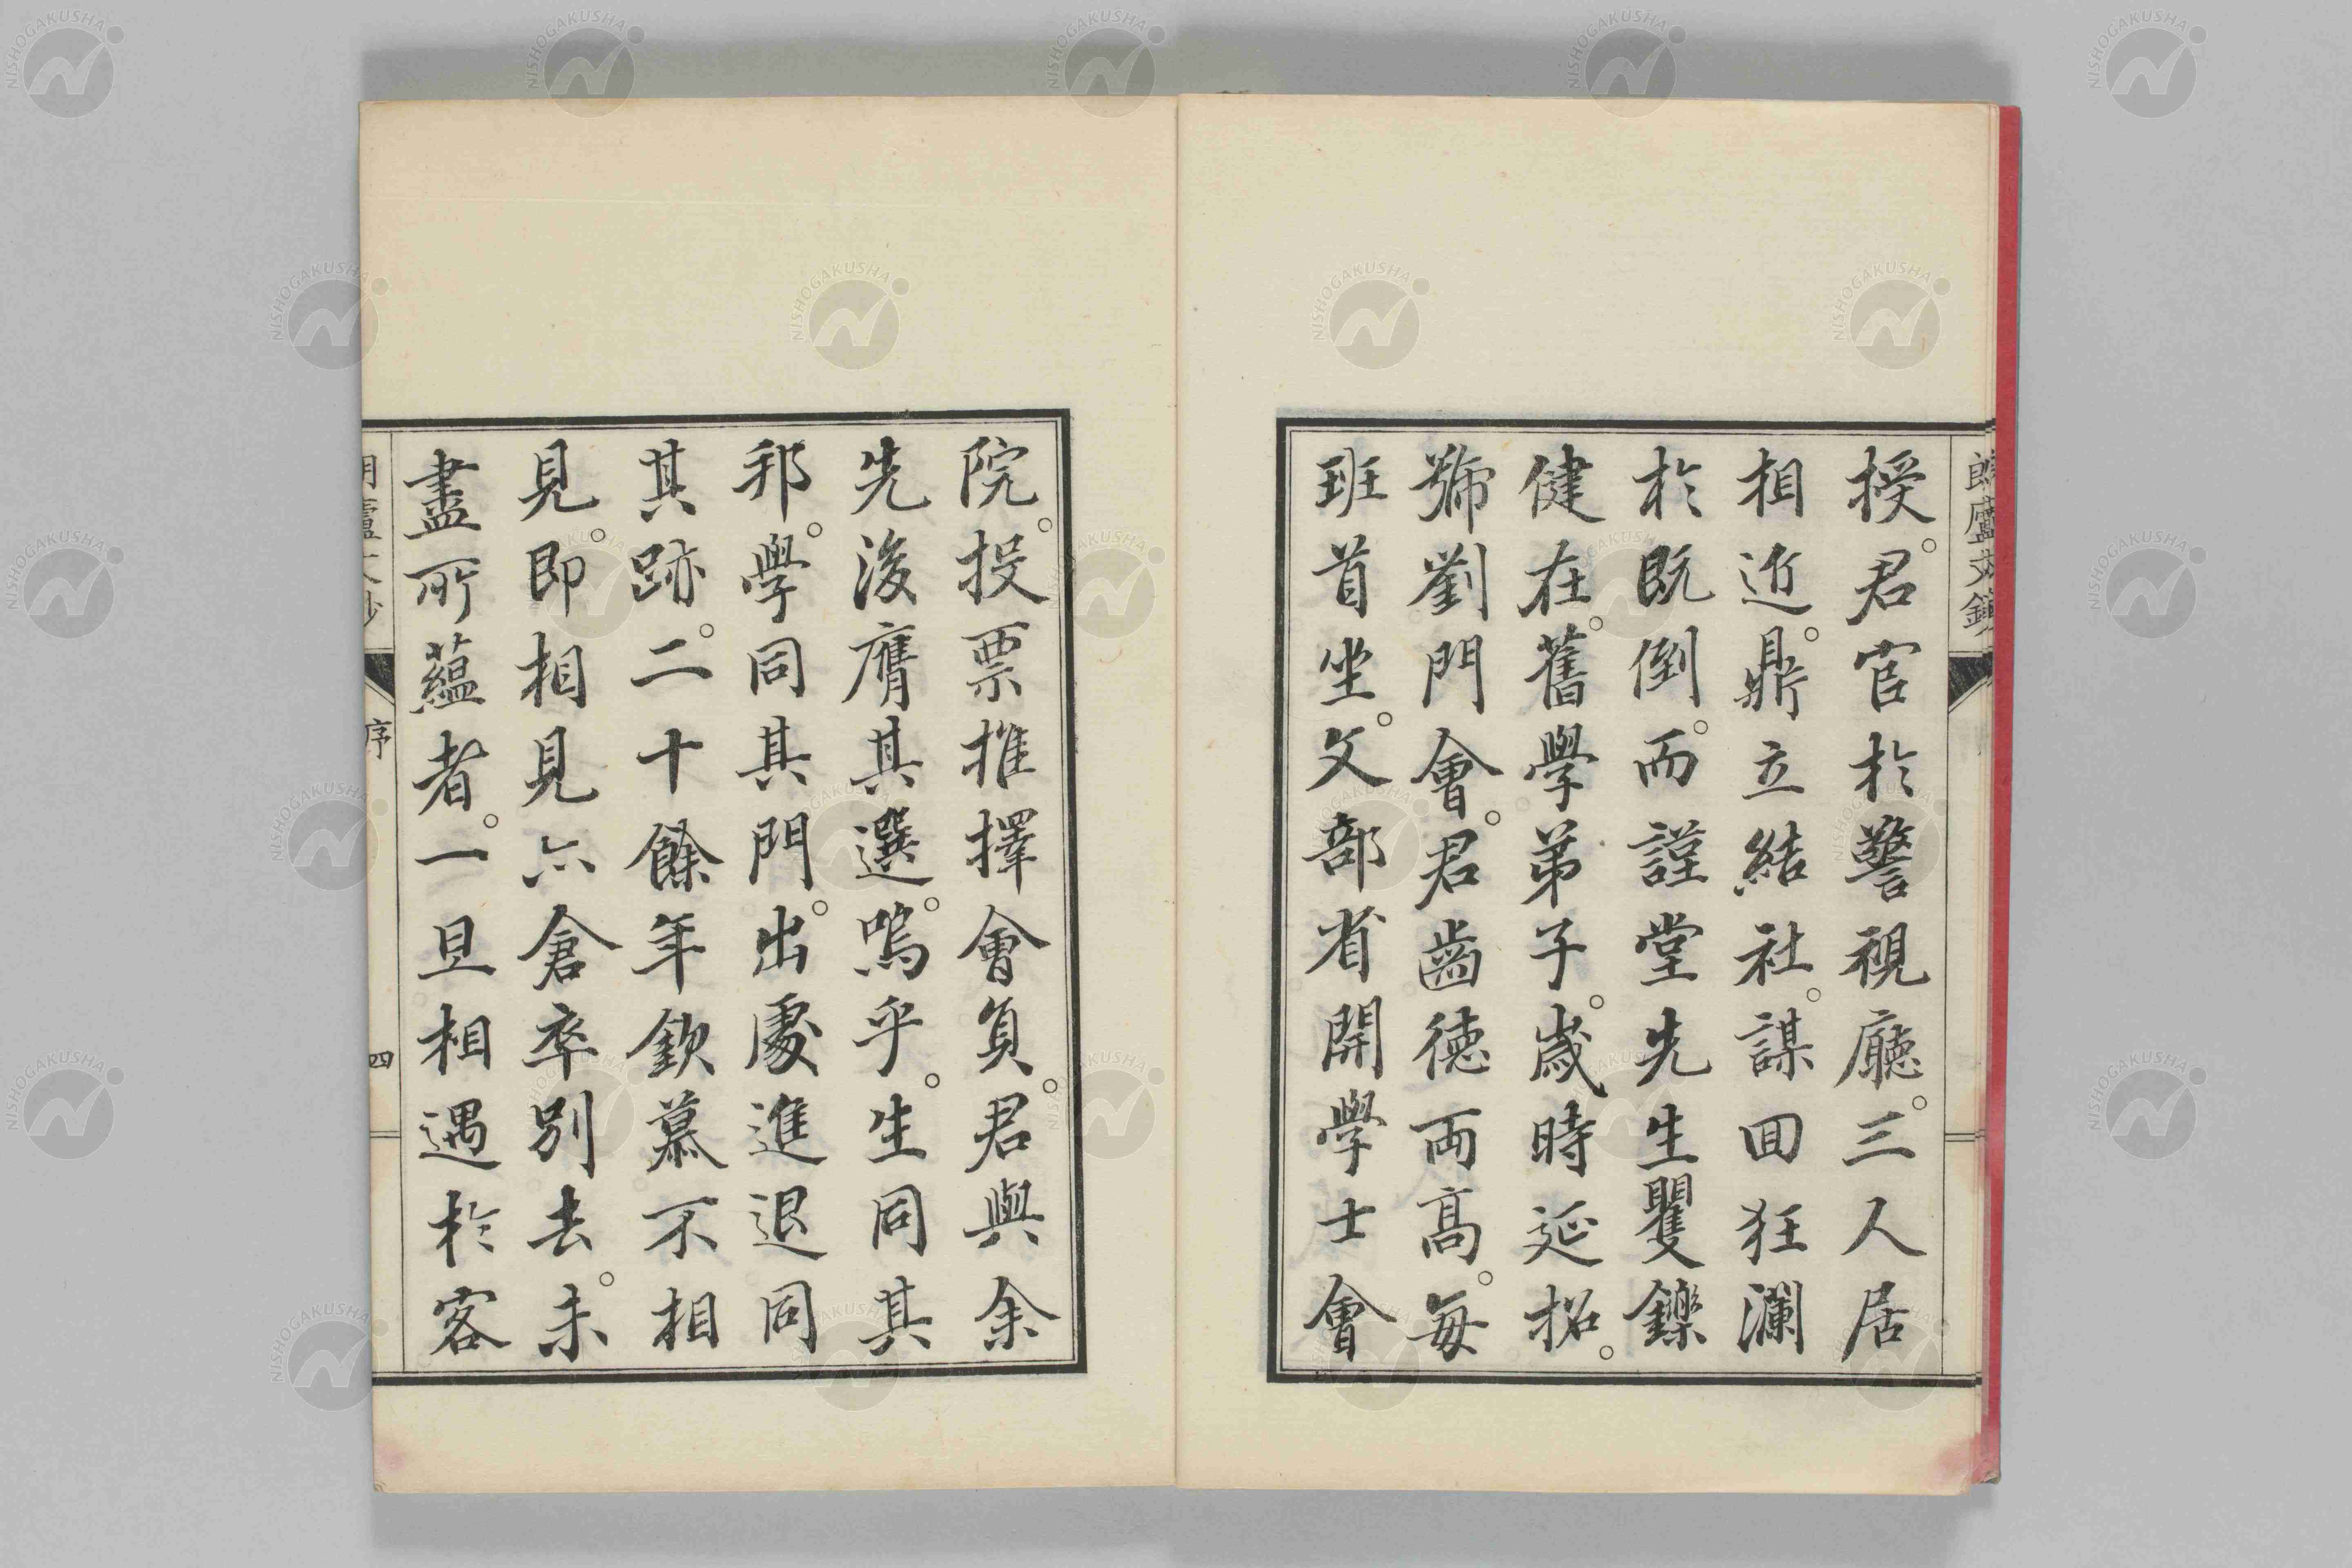 授。君官於警視廳。三人居
相近。鼎立結社。謀回狂瀾
於既倒。而謹堂先生矍鑠
健在。舊學弟子。歲時延招。
號劉門會。君齒德両高。每
班首坐。文部省開學士會
院。投票推擇會員。君與余
先後膺其選。嗚乎。生同其
邦。學同其門。出處進退同
其跡。二十餘年欽慕不相
見。即相見亦倉卒別去。未
盡所蘊者。一旦相遇於客
朗廬文鈔
序
四
NISHOGAKUSHA